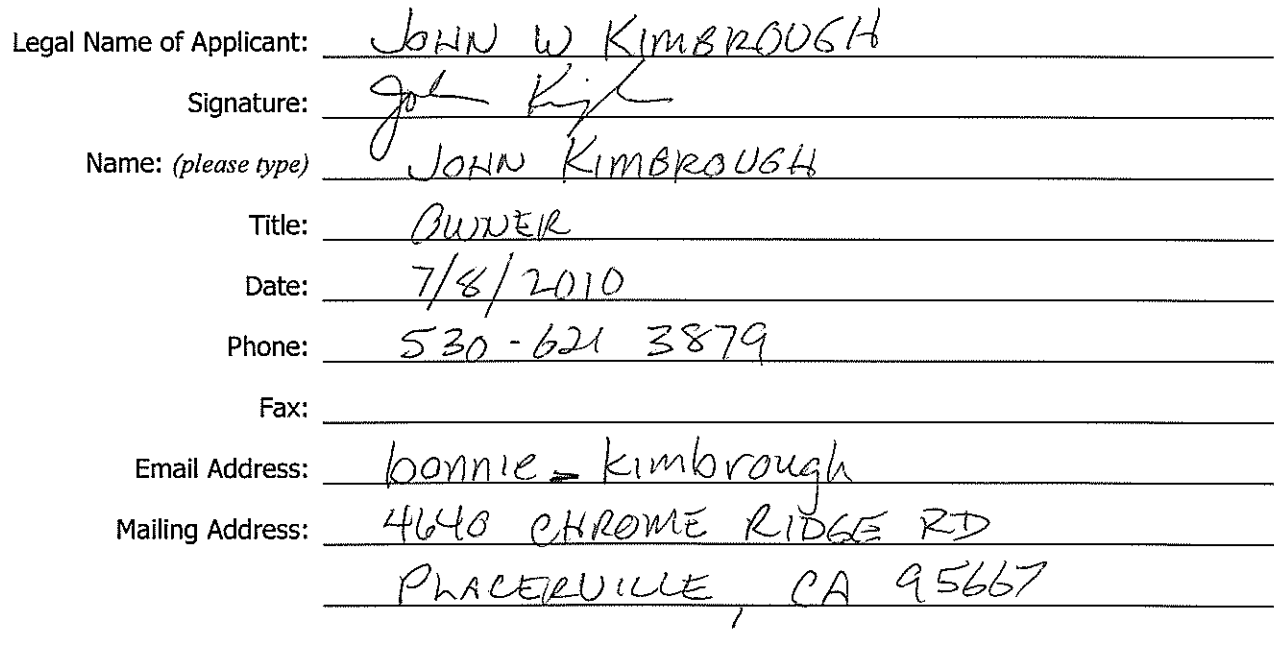 Legal Name of Applicant: JOHN W KIMBROUGH
Signature: John
Name: (please type) JOHN KIMBROUGH
Title: OWNER
Date: 7/8/2010
Phone: 530-621 3879
Fax:
Email Address: bonnie_kimbrough
Mailing Address: 4640 CHROME RIDGE RD
PLACERVILLE, CA 95667